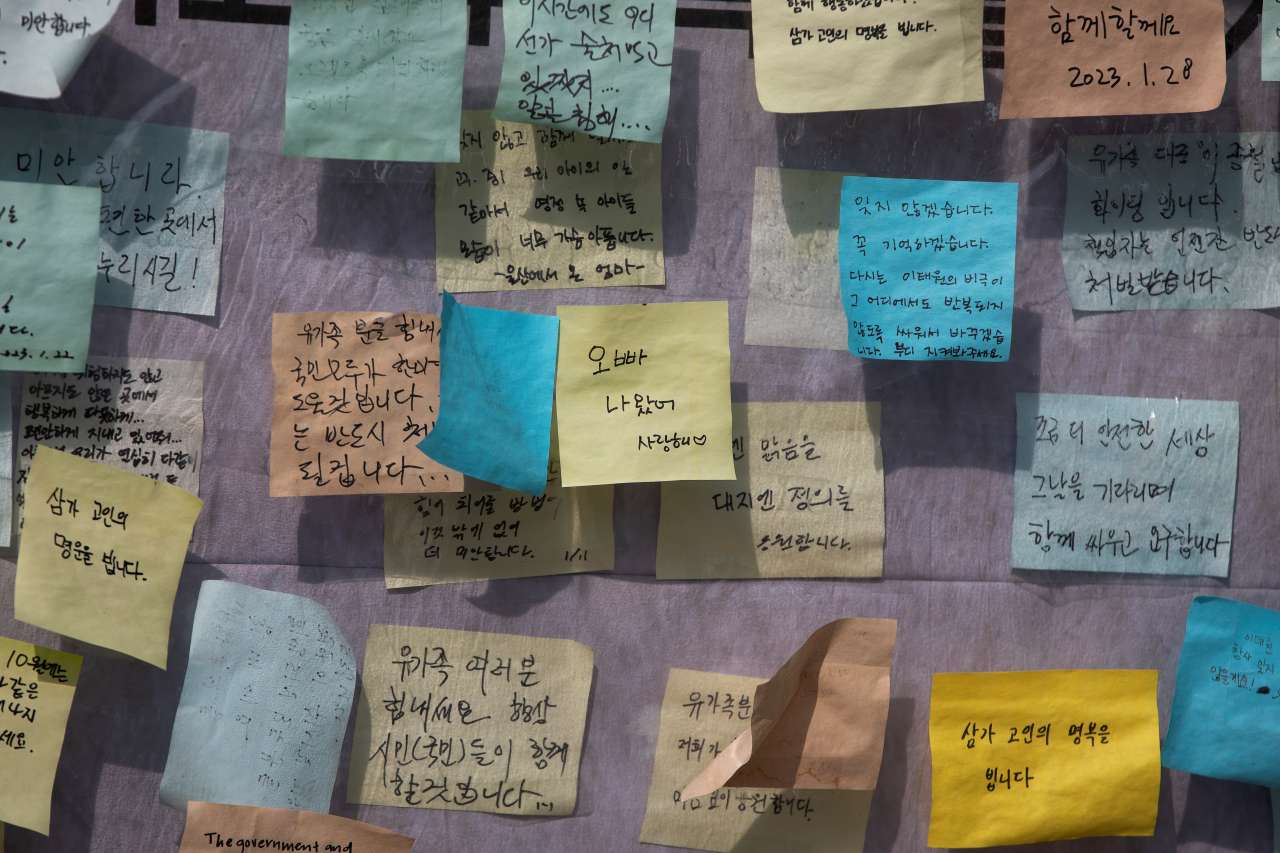 미안합니다.
이시간에도 어디
선가 술쳐먹고
있겠져...
삼가 고인의 명복을 빕니다.
함께할께요
2023.1.28
미안합니다
편한 곳에서
누리시길!
잊지 않고 함께
우리 아이의 일
같아서 영정 속 아이들
모습이 너무 가슴아픕니다.
-울산에서 온 엄마-
잊지 않겠습니다.
꼭 기억하겠습니다.
다시는 이태원의 비극이
그 어디에서도 반복되지
않도록 싸워서 바꾸겠습
니다. 부디 지켜봐주세요.
유가족
화이팅 입니다.
책임자는 언젠간 반드
처벌받습니다.
2023.1.22
아프지도 않은 곳에서
행복하게 따뜻하게...
편안하게 지내고 있어줘...
유가족 분들 힘내
국민모두가 한마
도울것입니다.
는 반드시 처
될겁니다...
오빠
나 왔어
사랑해♡
맑음을
대지엔 정의를
응원합니다.
좀 더 안전한 세상
그날을 기다리며
함께 싸우고 요구합니다
힘이 되어줄 방법
이것 밖에 없어
더 미안합니다. 1/11
삼가 고인의
명운을 빕니다.
10월에는
같은
세요.
유가족 여러분
힘내세요 항상
시민(국민)들이 함께
할것입니다...
유가족분
저희가
응원합니다.
삼가 고인의 명복을
빕니다
이태원
참사 잊지
않을게요!
The government and